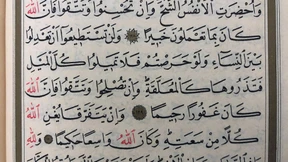 وَأُحْضِرَتِ الْأَنْفُسُ الشُّحَّ وَإِنْ تُحْسِنُوا وَتَتَّقُوا فَإِنَّ اللّٰهَ
كَانَ بِمَا تَعْمَلُونَ خَبِيرًا ۝ وَلَنْ تَسْتَطِيعُوا أَنْ تَعْدِلُوا
بَيْنَ النِّسَاءِ وَلَوْ حَرَصْتُمْ فَلَا تَمِيلُوا كُلَّ الْمَيْلِ
فَتَذَرُوهَا كَالْمُعَلَّقَةِ وَإِنْ تُصْلِحُوا وَتَتَّقُوا فَإِنَّ اللّٰهَ
كَانَ غَفُورًا رَحِيمًا ۝ وَإِنْ يَتَفَرَّقَا يُغْنِ اللّٰهُ
كُلًّا مِنْ سَعَتِهِ وَكَانَ اللّٰهُ وَاسِعًا حَكِيمًا ۝ وَلِلّٰهِ